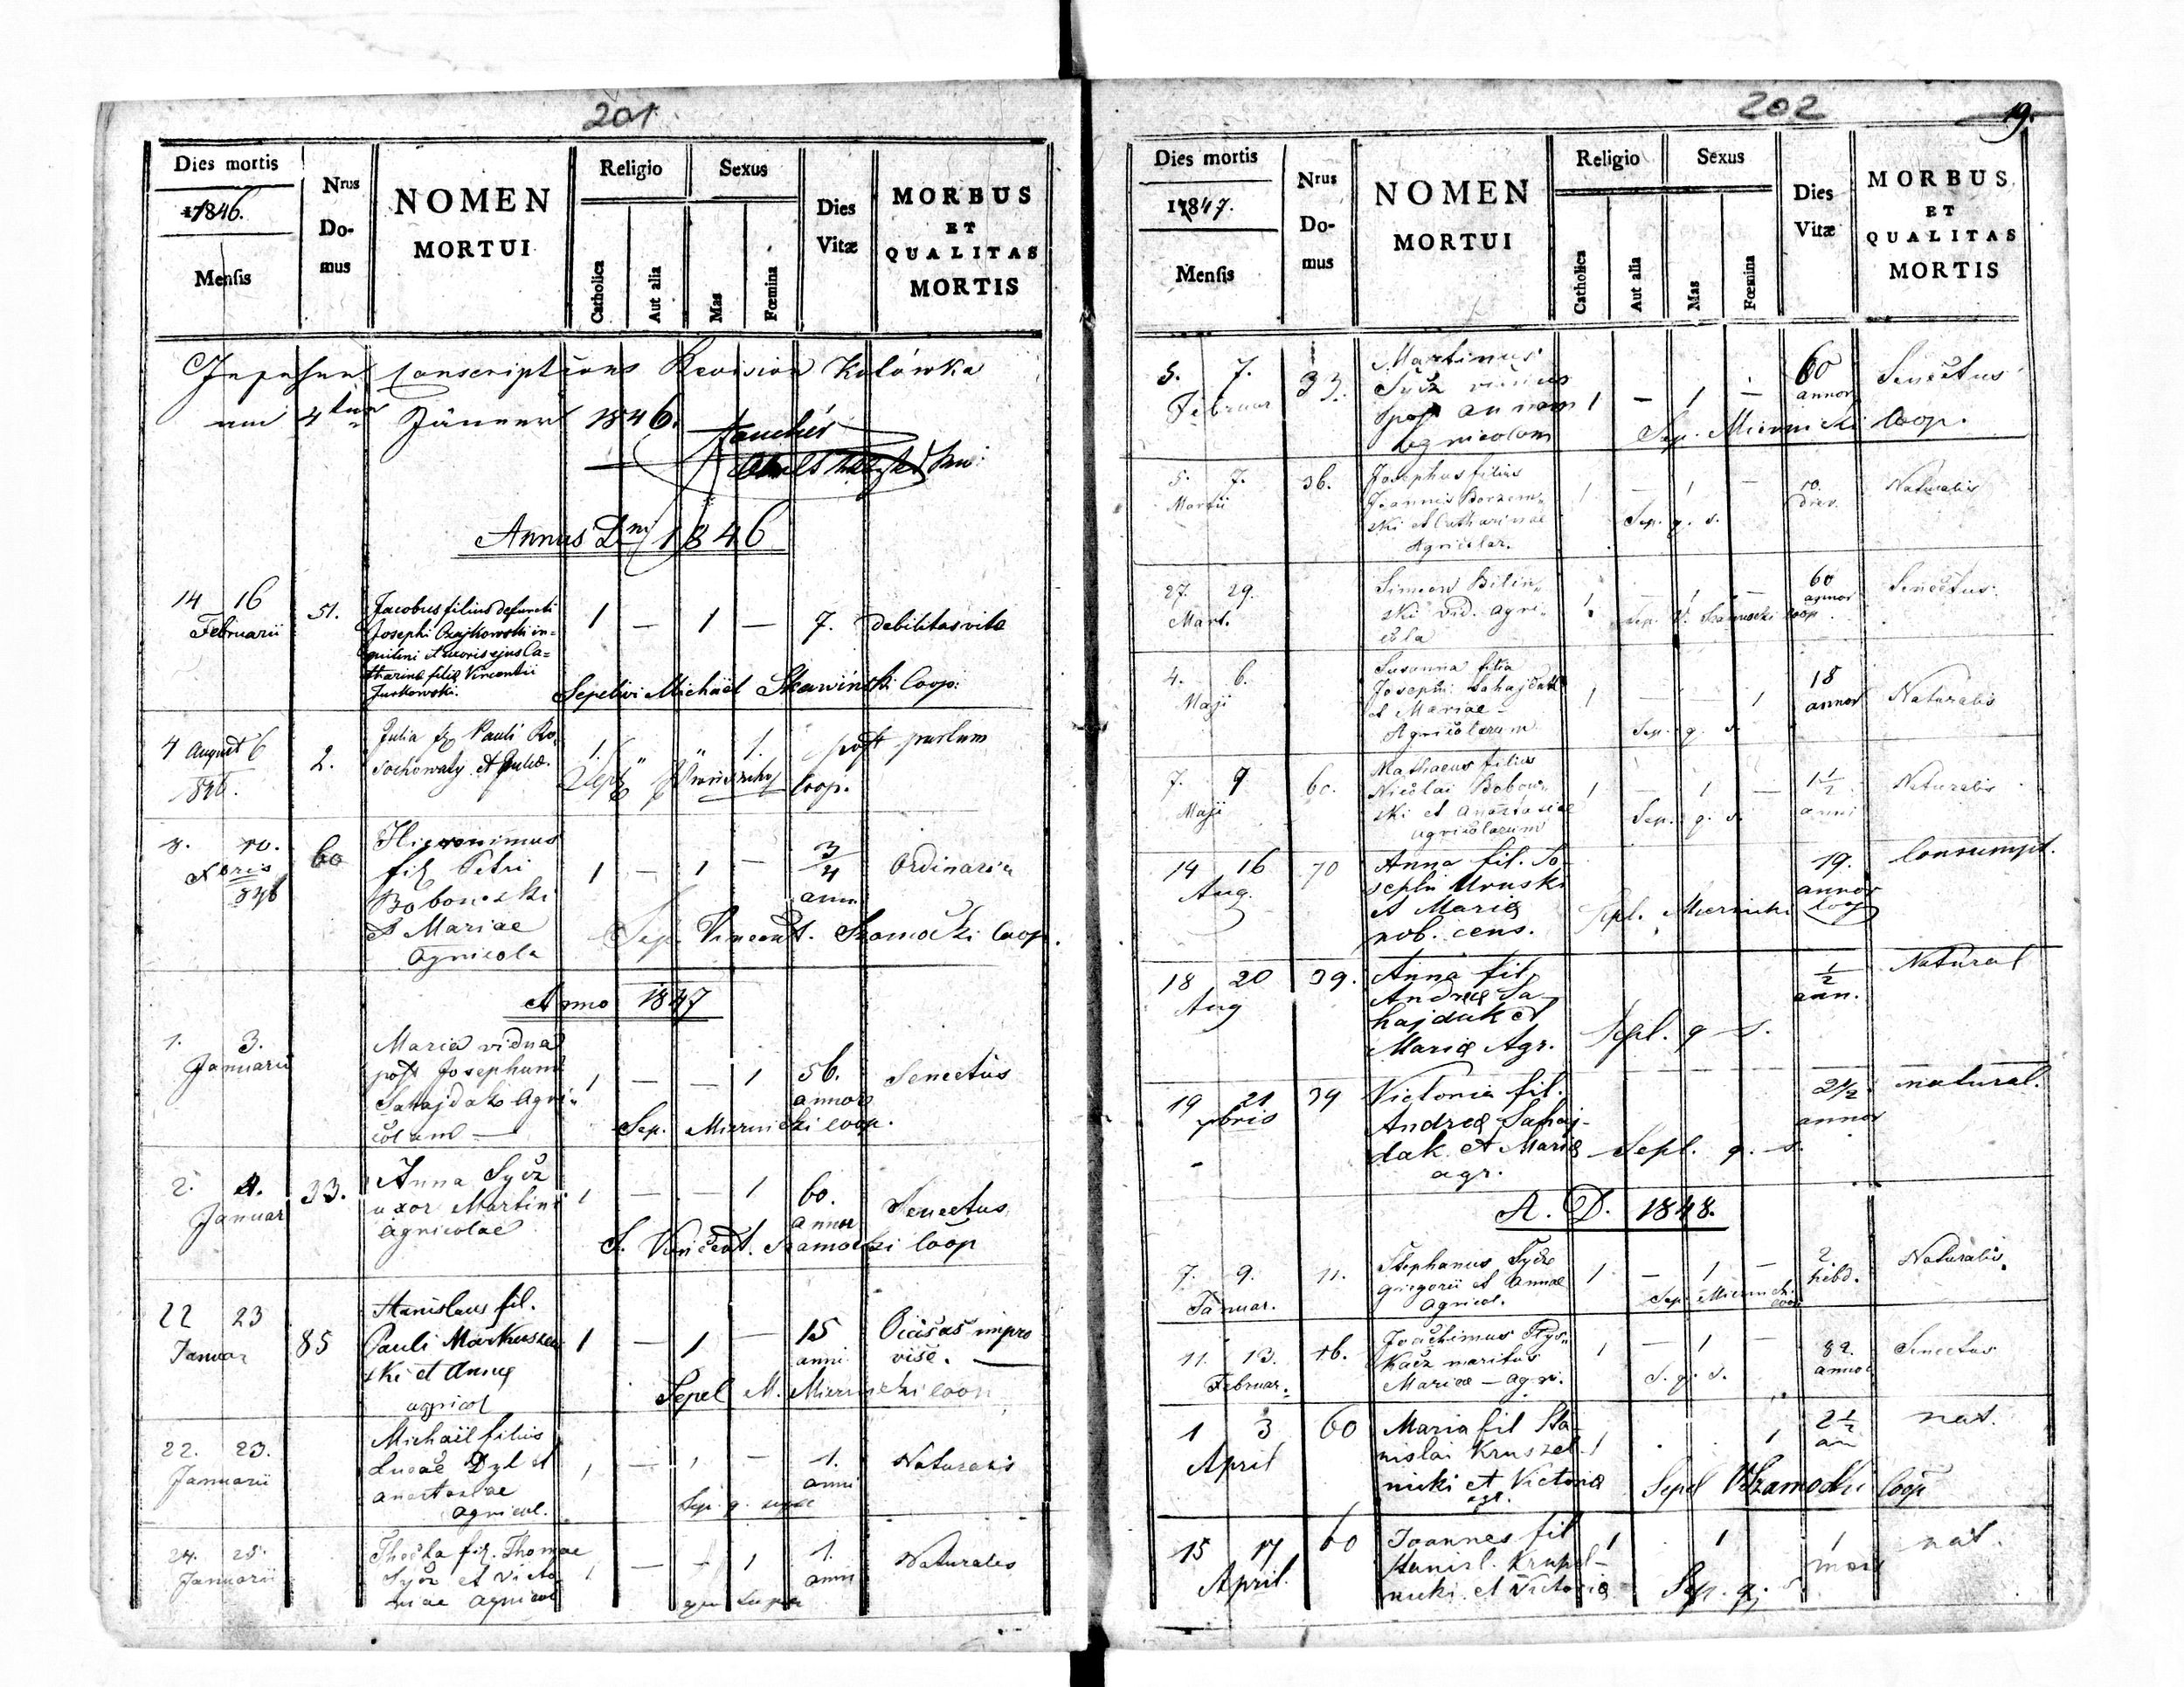 201
Dies mortis
1846.
Menſis
Nrus
Do-
mus
NOMEN
MORTUI
Religio
Catholica
Aut alia
Sexus
Mas
Fœmina
Dies
Vitæ
MORBUS
ET
QUALITAS
MORTIS
Conscriptions Revision Kolówka
am 4ten Jänner 1846.
Annus Dni 1846
14 16
Februarii
51.
Jacobus filius defuncti
Josephi Czajkowski in=
quilini et uxoris ejus Ca=
tharinæ filiæ Vincentii
Jurkowski.
1 — 1 —
7.
debilitas vitæ
Sepelivi Michael Skawiński Coop:
4 August 6
846.
2.
Julia fil Pauli Ro-
sochowaty et Juliæ.
1. " " 1.
post partum
Coop.
8. 10.
Xbris
846
60
Hieronimus
fil Petri
Bobowski
et Mariae
Agricola
1 — 1 —
3/4
anni
Ordinaria
Sep. Vincent. Szamocki Coop.
Anno 1847
1. 3.
Januarii
Maria vidua
post Josephum
Sahajdak Agri-
colam —
1 — — 1
56.
annor
Senectus
Sep. Miernicki coop.
2. 4.
Januar
33.
Anna Sycz
uxor Martini
agricolae
1 — — 1
60.
annor
Senectus
S. Vincent. Szamocki Coop
22 23
Januar
85
Stanislaus fil.
Pauli Markuszew
ski et Annæ
agricol
1 — 1 —
15
anni
impro
vise.
Sepel M. Miernicki coop
22. 23.
Januarii
Michaël filius
Lucae Dyl et
Anastasiae
agricol.
1 — 1 —
1.
anni
Naturalis
Sep. q. supra
24. 25.
Januarii
Thecla fil. Thomae
Sycz et Victo
riae agricol
1 — — 1
1.
anni
Naturalis
qui supra
202
19.
Dies mortis
1847.
Menſis
Nrus
Do-
mus
NOMEN
MORTUI
Religio
Catholica
Aut alia
Sexus
Mas
Fœmina
Dies
Vitæ
MORBUS
ET
QUALITAS
MORTIS
5. 7.
Februar
33.
Martinus
Sycz viduus
post Annam
agricolam
1 — 1 —
60
annor
Senectus
Sep. Miernicki Coop.
5. 7.
Martii
36.
Josephus filius
Joannis Borzem-
ski et Catharinae
Agricolar.
1 — 1 —
10.
dier.
Naturalis
Sep. q. s.
27. 29.
Mart.
Simeon Bilin-
ski vid. agri-
cola
1 — 1 —
60
annor
Senectus.
Sep. V. Szamocki Coop.
4. 6.
Maji
Susanna filia
Josephi Sahajdak
et Mariae
Agricolarum
1 — — 1
18
annor
Naturalis
Sep. q. s.
7. 9
Maji
60.
Mathaeus filius
Nicolai Bobow-
ski et Anastasiae
agricolarum
1 — 1 —
1 1/2
anni
Naturalis
Sep. q. s.
14 16
Aug.
70
Anna fil. Jo-
sephi Uruski
et Mariæ
nob. cens.
19.
annor
Consumpt.
Sepl. Miernicki Coop
18 20
Aug
39.
Anna fil.
Andreæ Sa-
hajdak et
Mariæ Agr.
1/2
ann.
Natural
Sepl. q s.
19 21
39
Victoria fil.
Andreæ Sahaj-
dak et Mariæ
agr.
2 1/2
annor
natural.
Sepl. q. s.
A. D. 1848.
7. 9.
Januar.
11.
Stephanus Sycz
Gregorii et Annae
Agricol.
1 — 1 —
2
hebd.
Naturalis.
Sep. Miernicki
coop
11. 13.
Februar.
16.
Joachimus
maritus
Mariae — agri.
1 — 1 —
82.
annor
Senectus
S. q. s.
1 3
April
60
Maria fil Sta-
nislai Kruszel-
nicki et Victoriæ
agr.
1 . . 1
2 1/2
an
nat.
Sepel V. Szamocki Coop
15 17
April.
60
Joannes fil
Stanisl. Kruszel-
nicki et Victoriæ
1 1
1
mens
nat.
Sep. q. s.